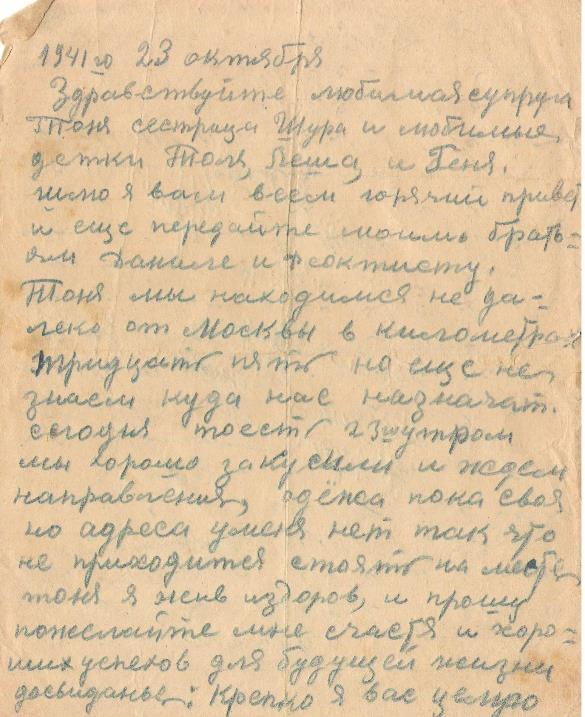 1941 го 23 октября
Здравствуйте любимая супруга
Тоня сестрица Шура и любимые
детки Толя, и Геня.
шлю я вам всем горячий привет
и еще передайте моимь брать=
ям Даниле и Феоктисту.
Тоня мы находимся не да-
леко от Москвы в километрах
тридцать пять но еще не
знаем куда нас назначат.
сегодня тоесть 23го утром
мы хорошо закусили и ждем
направления, одёжа пока своя
но адреса уменя нет так что
не приходится стоять на месте
тоня я жив издоров, и прошу
пожелайте мне счастя и хоро-
ших успехов для будущей жизни
досвиданье: Крепко я вас целую